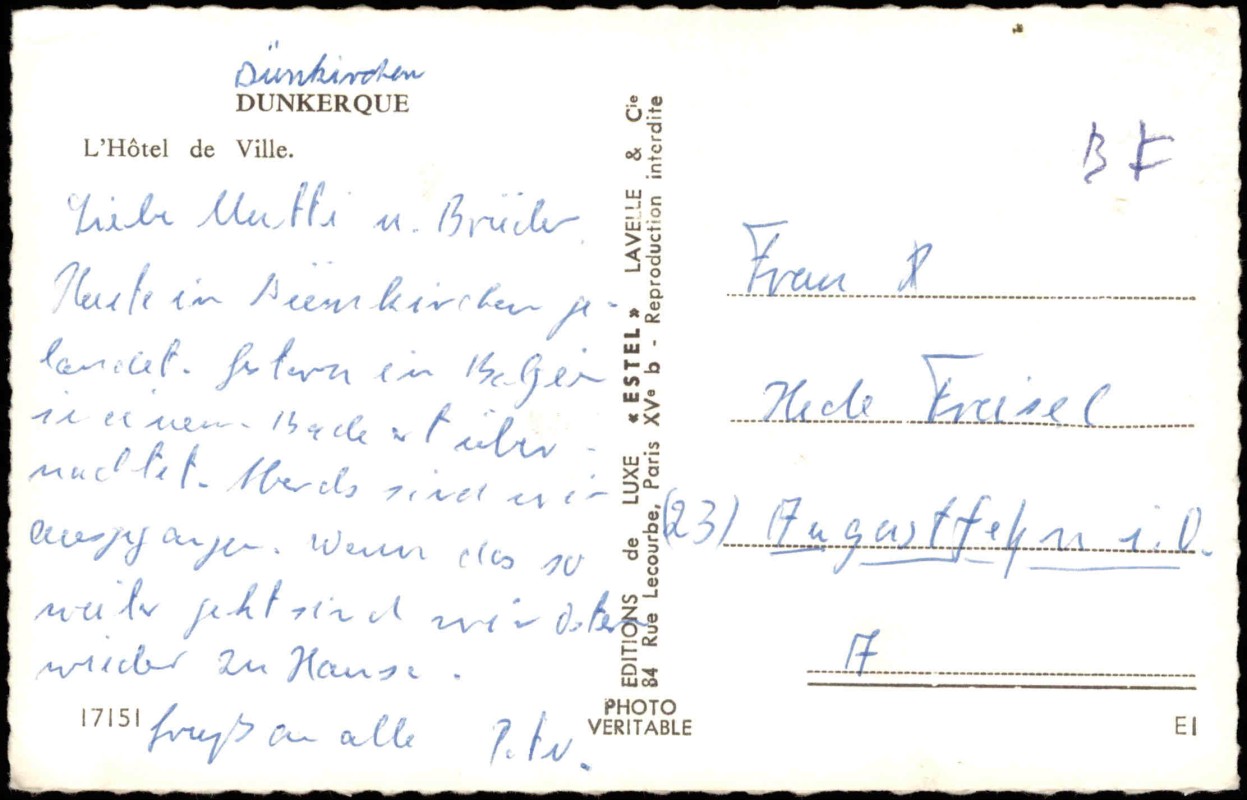 Dünkirchen
DUNKERQUE
L'Hôtel de Ville.
Liebe Mutti u. Brüder.
Heute in Dünkirchen ge-
landet. Gestern in Belgien
in einem Badeort über-
nachtet. Abends sind wir
ausgegangen. Wenn das so
weiter geht sind wir Ostern
wieder zu Hause.
Gruß an alle Peter.
17151
EDITIONS de LUXE « ESTEL » LAVELLE & Cie
84 Rue Lecourbe, Paris XVe b - Reproduction interdite
PHOTO
VERITABLE
B F
Frau
Hede Freisel
(23) Augustfehn i.O.
A
E1